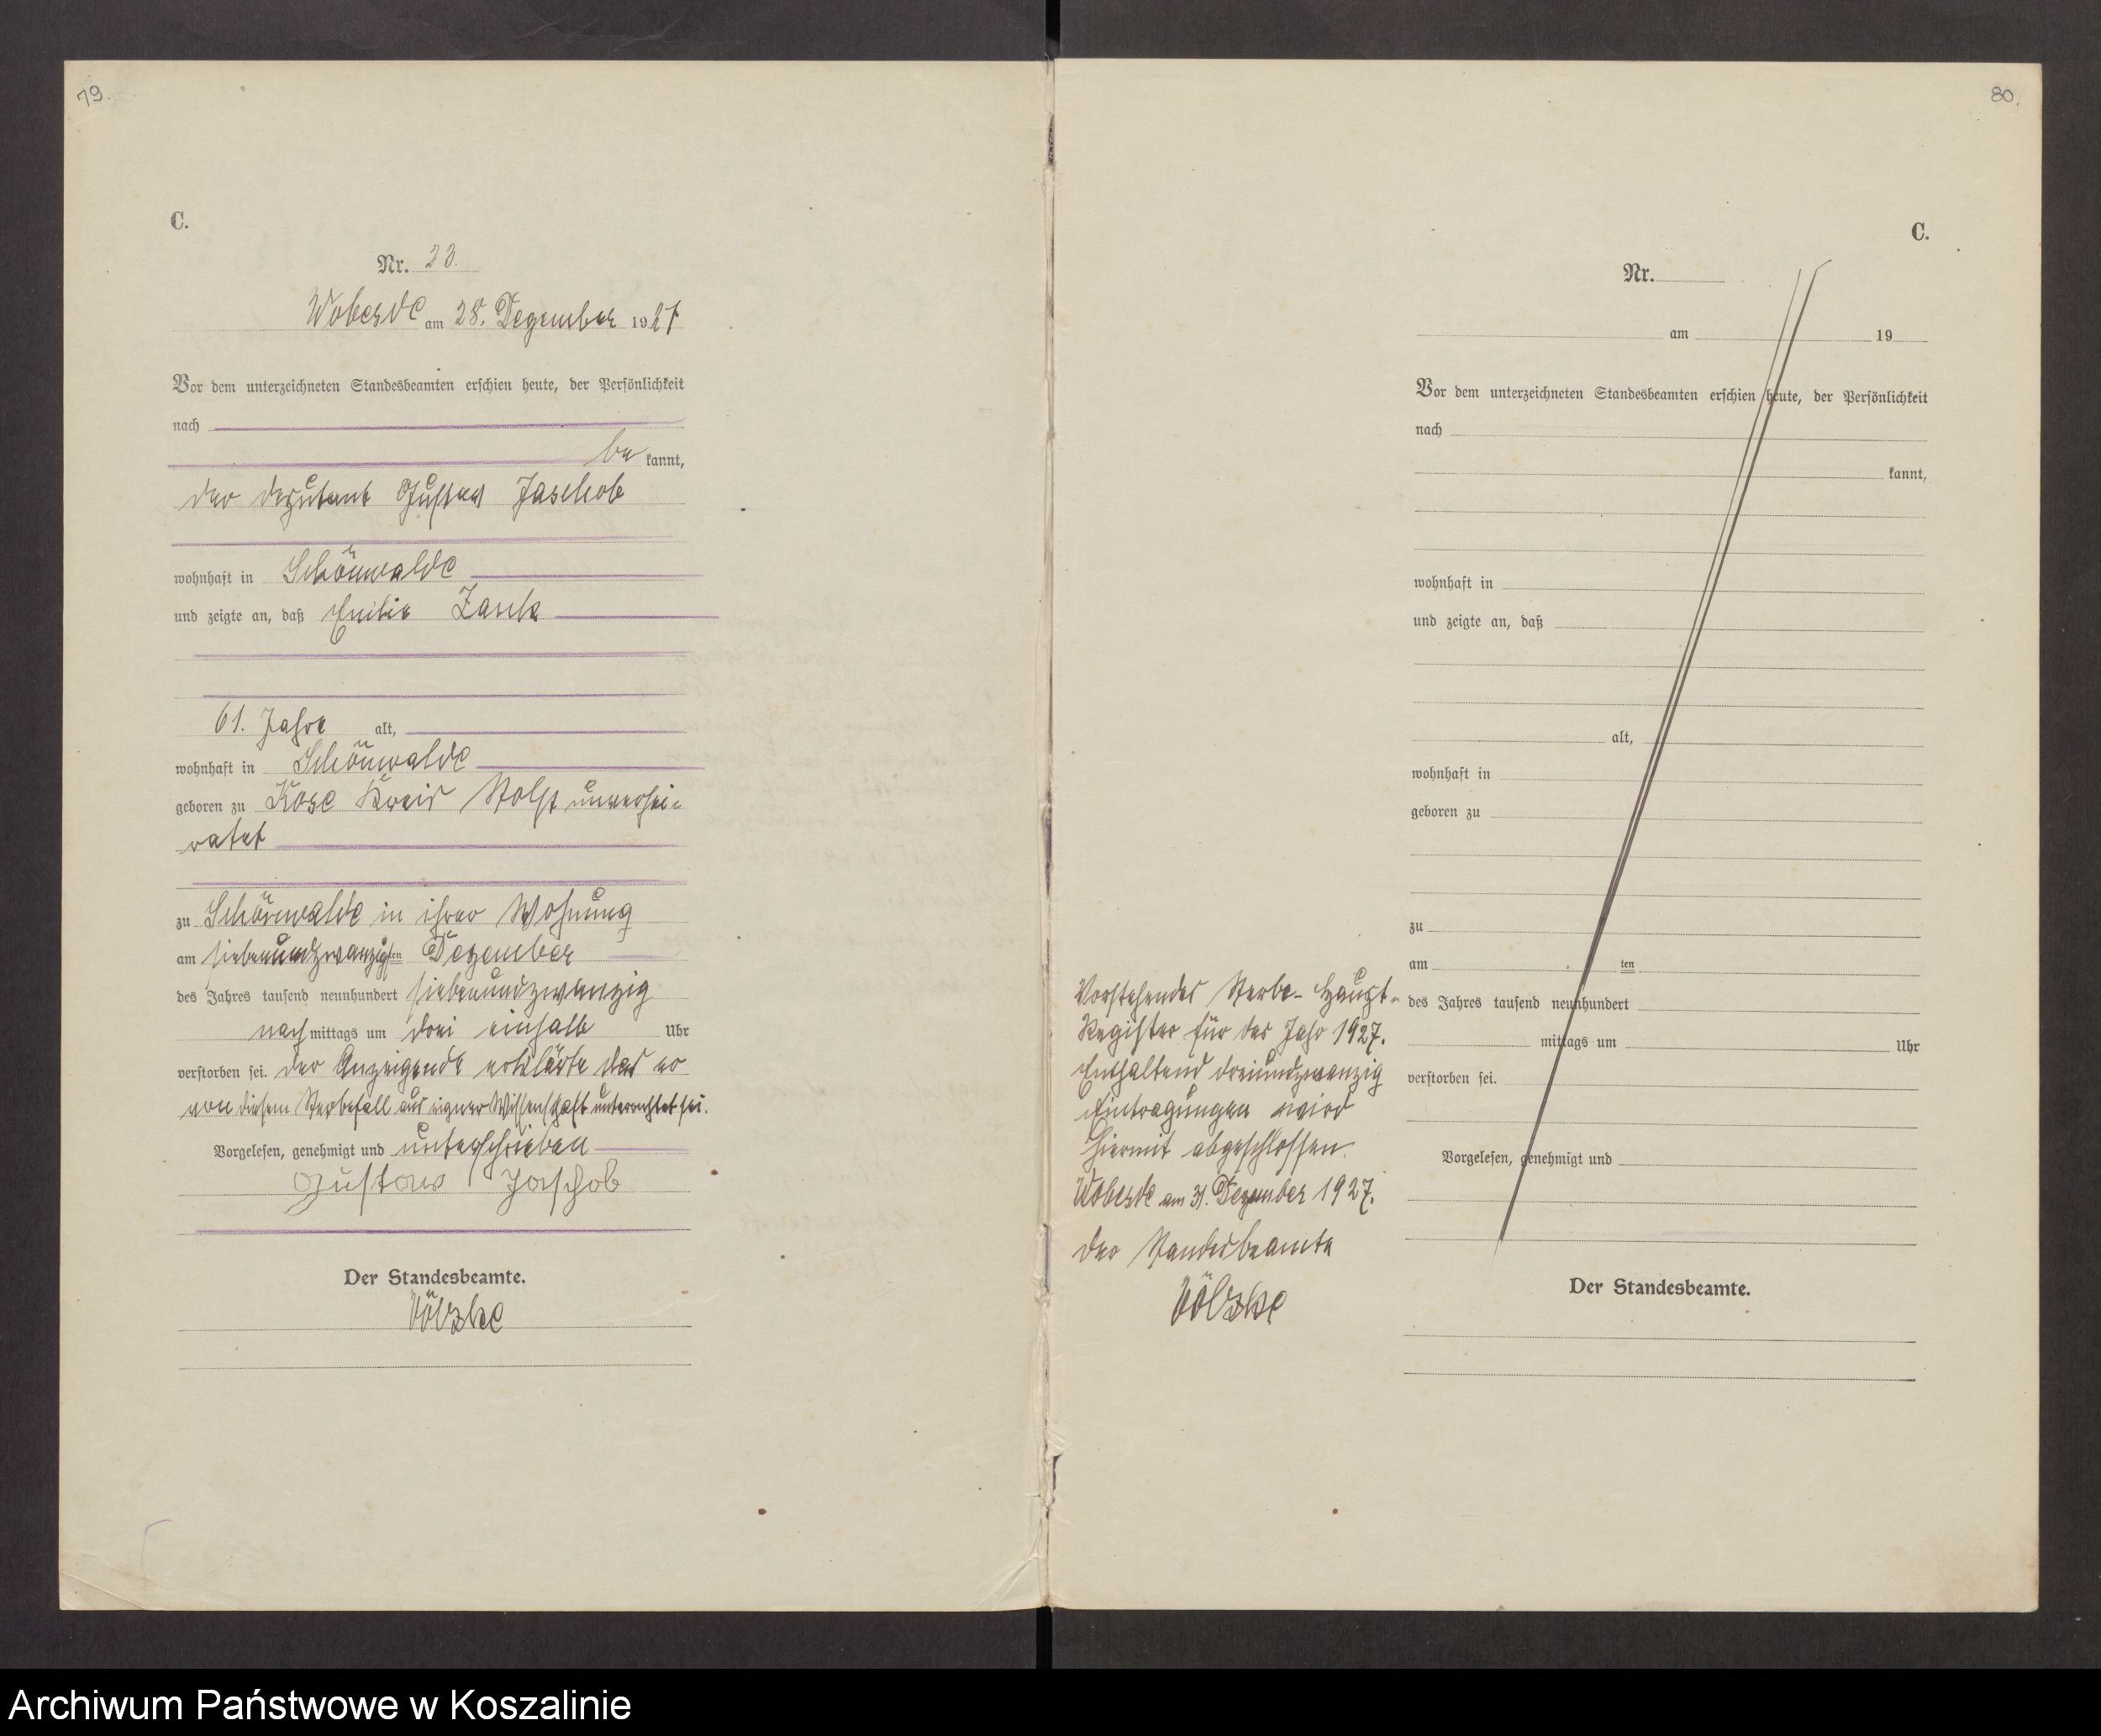 79.
C.
Nr. 23.
Wobesde am 28. Dezember 1927
Vor dem unterzeichneten Standesbeamten erschien heute, der Persönlichkeit
nach
be kannt,
der Deputant Gustav Jaschob
wohnhaft in Schönwalde
und zeigte an, daß Emilie
61. Jahre alt,
wohnhaft in Schönwalde
geboren zu Kose Kreis Stolp unverhei-
ratet
zu Schönwalde in ihrer Wohnung
am siebenundzwanzigsten Dezember
des Jahres tausend neunhundert siebenundzwanzig
nachmittags um drei einhalb Uhr
verstorben sei. Der Anzeigende erklärte das er
von diesem Sterbefall aus eigner Wissenschaft unterrichtet sei.
Vorgelesen, genehmigt und unterschrieben
Gustav Jaschob
Der Standesbeamte.
Völzke
80.
C.
Nr.
am 19
Vor dem unterzeichneten Standesbeamten erschien heute, der Persönlichkeit
nach
kannt,
wohnhaft in
und zeigte an, daß
alt,
wohnhaft in
geboren zu
zu
am ten
des Jahres tausend neunhundert
mittags um Uhr
verstorben sei.
Vorgelesen, genehmigt und
Der Standesbeamte.
Vorstehendes Sterbe-Haupt-
Register für das Jahr 1927.
Enthaltend dreiundzwanzig
Eintragungen wird
hiermit abgeschlossen.
Wobesde am 31. Dezember 1927.
Der Standesbeamte
Völzke
Archiwum Państwowe w Koszalinie